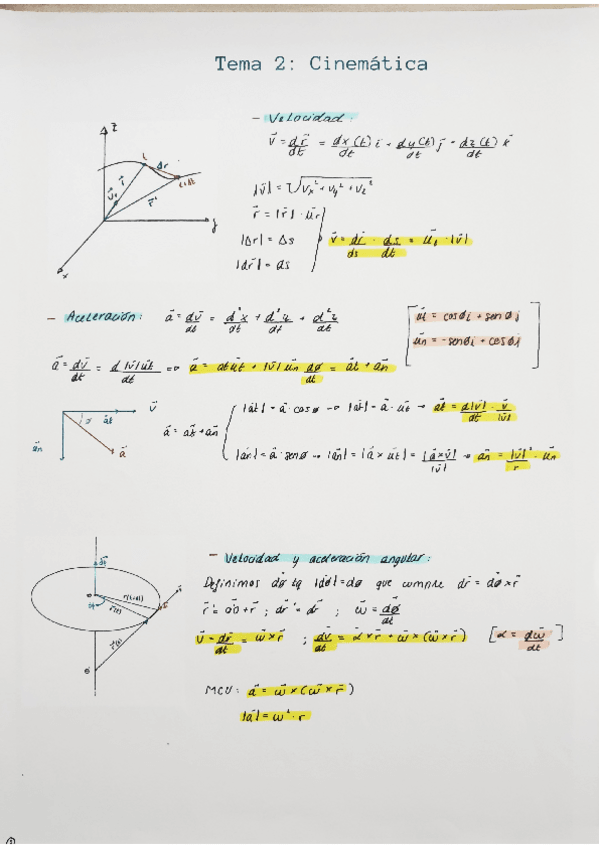 Tema 2: Cinemática
- Velocidad:
v⃗ = dr⃗/dt = dx(t)/dt i + dy(t)/dt j + dz(t)/dt k⃗
|v⃗| = √(vx² + vy² + vz²)
r⃗ = |r⃗| · u⃗r
|Δr| = Δs
|dr⃗| = ds
v⃗ = dr⃗/ds · ds/dt = u⃗t · |v⃗|
z
Δr
t
t+Δt
r⃗
r⃗'
y
x
- Aceleración: a⃗ = dv⃗/dt = d²x/dt + d²y/dt + d²z/dt
[u⃗t = cosø i + senø j
u⃗n = -senø i + cosø j]
a⃗ = dv⃗/dt = d|v⃗|u⃗t/dt => a⃗ = at u⃗t + |v⃗| u⃗n dø/dt = a⃗t + a⃗n
v⃗
ø
a⃗t
a⃗n
a⃗
a⃗ = a⃗t + a⃗n
|a⃗t| = a⃗ · cosø → |a⃗t| = a⃗ · u⃗t → a⃗t = d|v⃗|/dt · v⃗/|v⃗|
|a⃗n| = a⃗ · senø → |a⃗n| = |a⃗ × u⃗t| = |a⃗ × v⃗|/|v⃗| → a⃗n = |v⃗|²/r · u⃗n
- Velocidad y aceleración angular:
Definimos dø⃗ tq |dø⃗| = dø que cumple dr⃗ = dø⃗ × r⃗
r⃗' = o'o + r⃗ ; dr⃗' = dr⃗ ; w⃗ = dø⃗/dt
v⃗ = dr⃗/dt = w⃗ × r⃗ ; dv⃗/dt = α⃗ × r⃗ + w⃗ × (w⃗ × r⃗) [α⃗ = dw⃗/dt]
r(t+dt)
r(t)
r'(t)
o
o'
MCU: a⃗ = w⃗ × (w⃗ × r⃗)
|a⃗| = w² · r